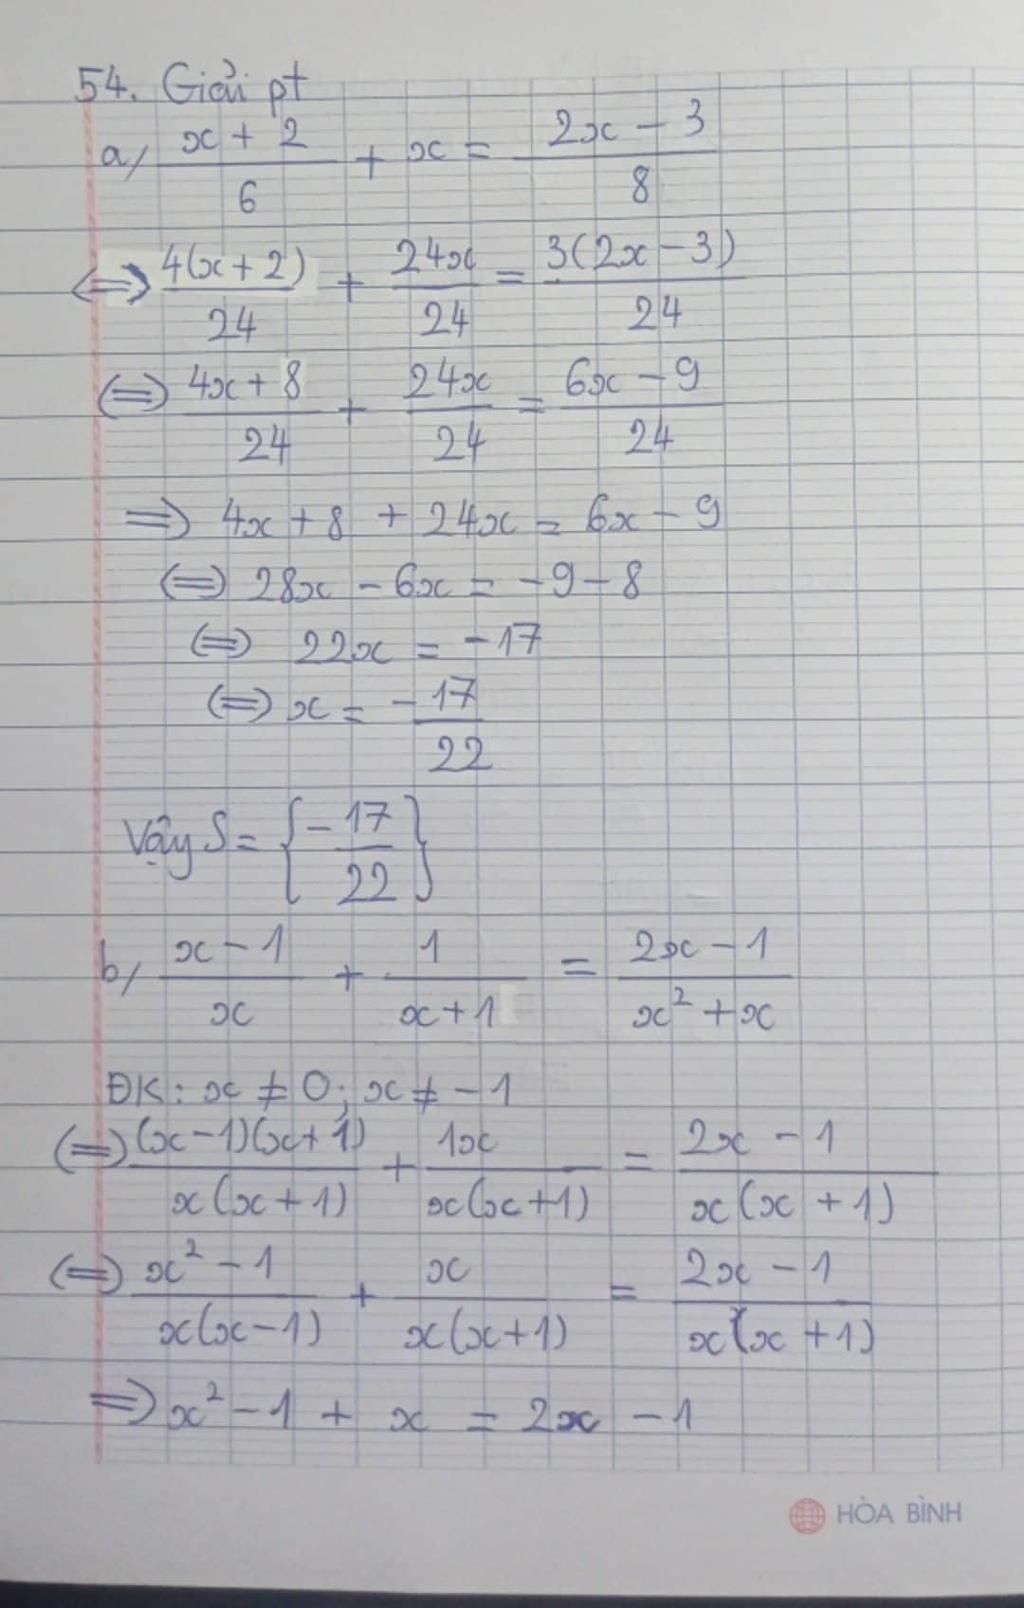 54. Giải pt
a/ (x + 2)/6 + x = (2x - 3)/8
⇔ 4(x + 2)/24 + 24x/24 = 3(2x - 3)/24
⇔ (4x + 8)/24 + 24x/24 = (6x - 9)/24
⇒ 4x + 8 + 24x = 6x - 9
⇔ 28x - 6x = -9 - 8
⇔ 22x = -17
⇔ x = -17/22
Vậy S = {-17/22}
b/ (x - 1)/x + 1/(x + 1) = (2x - 1)/(x² + x)
ĐK: x ≠ 0; x ≠ -1
⇔ (x - 1)(x + 1)/x(x + 1) + 1x/x(x + 1) = (2x - 1)/x(x + 1)
⇔ (x² - 1)/x(x - 1) + x/x(x + 1) = (2x - 1)/x(x + 1)
⇒ x² - 1 + x = 2x - 1
HÒA BÌNH